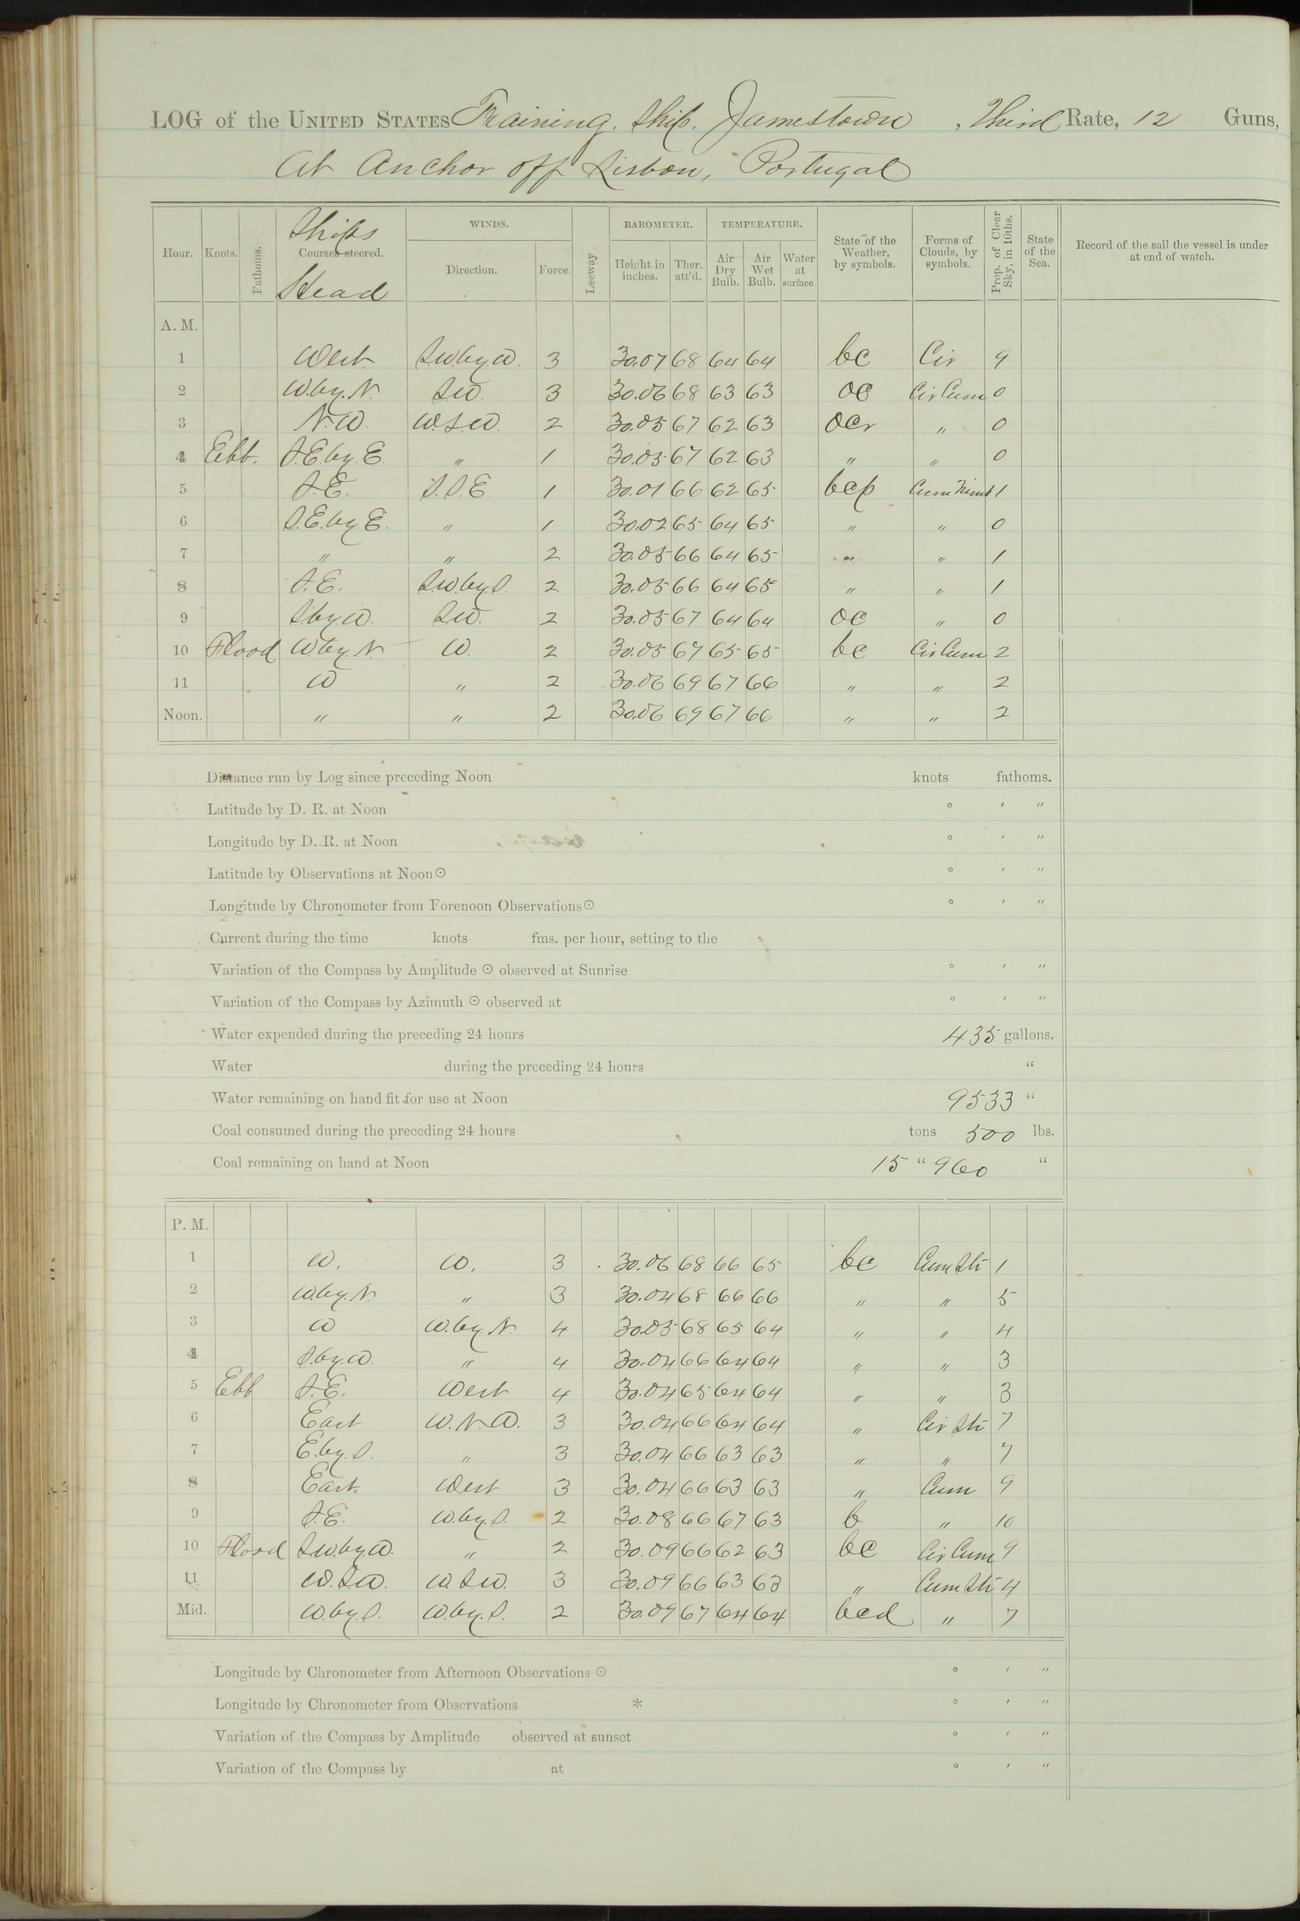 LOG of the UNITED STATES Training Ship Jamestown, Third Rate, 12 Guns,
At Anchor off Lisbon, Portugal
Hour. Knots. Fathoms. Ships Courses steered. Head WINDS. Direction. Force. Leeway BAROMETER. Height in inches. Ther. att'd. TEMPERATURE. Air Dry Bulb. Air Wet Bulb. Water at surface. State of the Weather, by symbols. Forms of Clouds, by symbols. Prop. of Clear Sky, in 10ths. State of the Sea. Record of the sail the vessel is under at end of watch.
A. M.
1 West S.W. by W. 3 30.07 68 64 64 bc Cir 9
2 W. by. N. S.W. 3 30.06 68 63 63 oc Cir Cum 0
3 N. W. W.S.W. 2 30.05 67 62 63 ocr " 0
4 Ebb. S.E. by. E. " 1 30.05 67 62 63 " " 0
5 S.E. S.S.E. 1 30.01 66 62 65 bcp Cum Nimb 1
6 S.E. by. E. " 1 30.02 65 64 65 " " 0
7 " " 2 30.05 66 64 65 " " 1
8 S.E. S.W. by. S. 2 30.05 66 64 65 " " 1
9 S by W. S.W. 2 30.05 67 64 64 oc " 0
10 Flood W. by. N W. 2 30.05 67 65 65 bc Cir Cum 2
11 W " 2 30.06 69 67 66 " " 2
Noon. " " 2 30.06 69 67 66 " " 2
Distance run by Log since preceding Noon knots fathoms.
Latitude by D. R. at Noon ° ' "
Longitude by D. R. at Noon ° ' "
Latitude by Observations at Noon ☉ ° ' "
Longitude by Chronometer from Forenoon Observations ☉ ° ' "
Current during the time knots fms. per hour, setting to the
Variation of the Compass by Amplitude ☉ observed at Sunrise ° ' "
Variation of the Compass by Azimuth ☉ observed at ° ' "
Water expended during the preceding 24 hours 435 gallons.
Water during the preceding 24 hours "
Water remaining on hand fit for use at Noon 9533 "
Coal consumed during the preceding 24 hours tons 500 lbs.
Coal remaining on hand at Noon 15 " 960 "
P. M.
1 W. W. 3 30.06 68 66 65 bc Cum Sti 1
2 W. by. N. " 3 30.04 68 66 66 " " 5
3 W W. by. N. 4 30.05 68 65 64 " " 4
4 S. by. W. " 4 30.04 66 64 64 " " 3
5 Ebb S.E. West 4 30.04 65 64 64 " " 3
6 East W. N. W. 3 30.04 66 64 64 " Cir Sti 7
7 E. by. S. " 3 30.04 66 63 63 " " 7
8 East. West 3 30.04 66 63 63 " Cum 9
9 S.E. W. by. S. 2 30.08 66 67 63 b " 10
10 Flood S.W. by. W. " 2 30.09 66 62 63 bc Cir Cum 9
11 W.S.W. W.S.W. 3 30.09 66 63 63 " Cum Sti 4
Mid. W. by. S. W. by. S. 2 30.09 67 64 64 bcd " 7
Longitude by Chronometer from Afternoon Observations ☉ ° ' "
Longitude by Chronometer from Observations * ° ' "
Variation of the Compass by Amplitude observed at sunset ° ' "
Variation of the Compass by at ° ' "